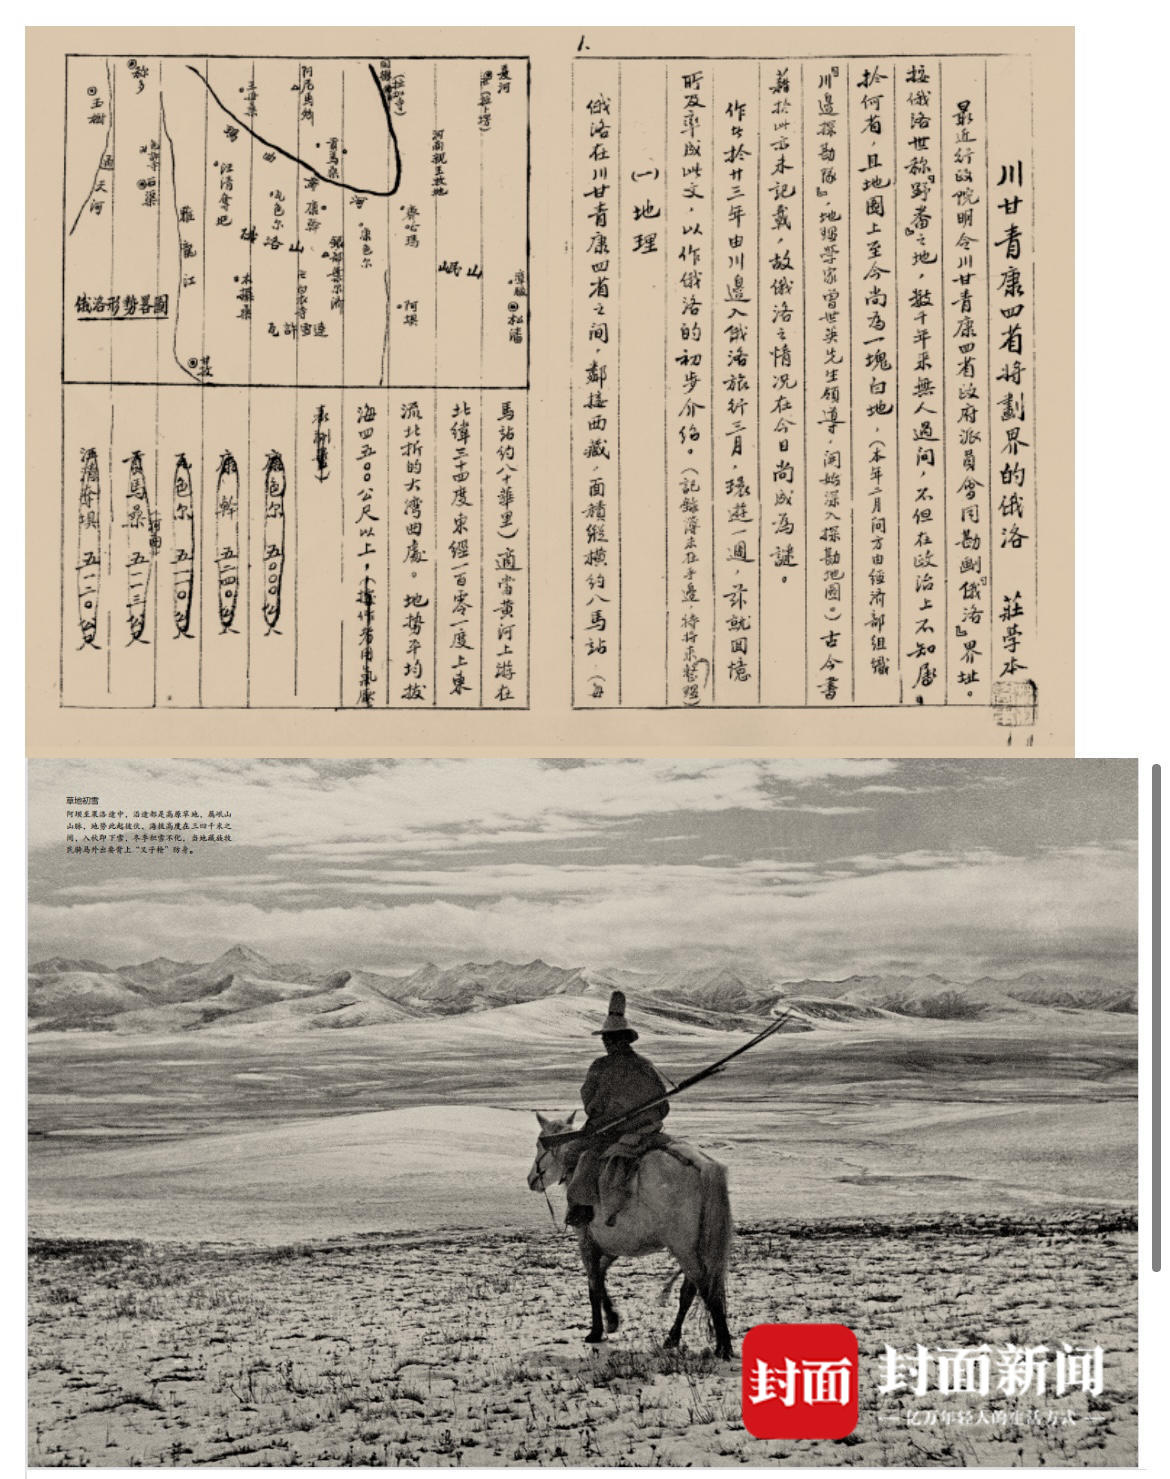 1.
川甘青康四省将劃界的俄洛 莊学本
最近行政院明令川甘青康四省政府派員會同勘劃『俄洛』界址。
按俄洛世称『野番』之地，数千年来無人過问，不但在政治上不知属
於何省，且地圖上至今尚為一塊白地，（本年二月间方由经济部组織
『川邊探勘隊』，地理学家曾世英先生领導，开始深入探勘地圖。）古今書
籍於此亦未记载，故俄洛之情况在今日尚成為謎。
作者於廿三年由川邊入俄洛旅行三月，環遊一週，兹就回憶
所及率成此文，以作俄洛的初步介绍。（记錄簿未在手邊，待将来整理）
（一）地理
俄洛在川甘青康四省之间，鄰接西藏，面積纵横约八馬站（每
夏河
松潘
岷山
河南親王牧地
齊哈瑪
阿壩
康色尔
阿尼馬卿
貢馬桑
康幹
瓦色尔
汪清奪垻
雅龍江
石渠
称多
玉樹
通天河
甘孜
俄洛形勢畧圖
馬站约八十華里）適當黄河上游在
北緯三十四度東經一百零一度上東
流北折的大湾曲處。地势平均拔
海四五〇〇公尺以上，（據作者用氣壓
表測量）
康色尔 五〇〇〇公尺
康幹 五二四〇公尺
瓦色尔 五一一〇公尺
貢馬桑 五一一三公尺
汪清奪垻 五一二〇公尺
草地初雪
阿坝至果洛途中，沿途都是高原草地，属岷山
山脉，地势此起彼伏，海拔高度在三四千米之
间，入秋即下雪，冬季积雪不化，当地藏族牧
民骑马外出要背上“叉子枪”防身。
封面
封面新闻
亿万年轻人的生活方式